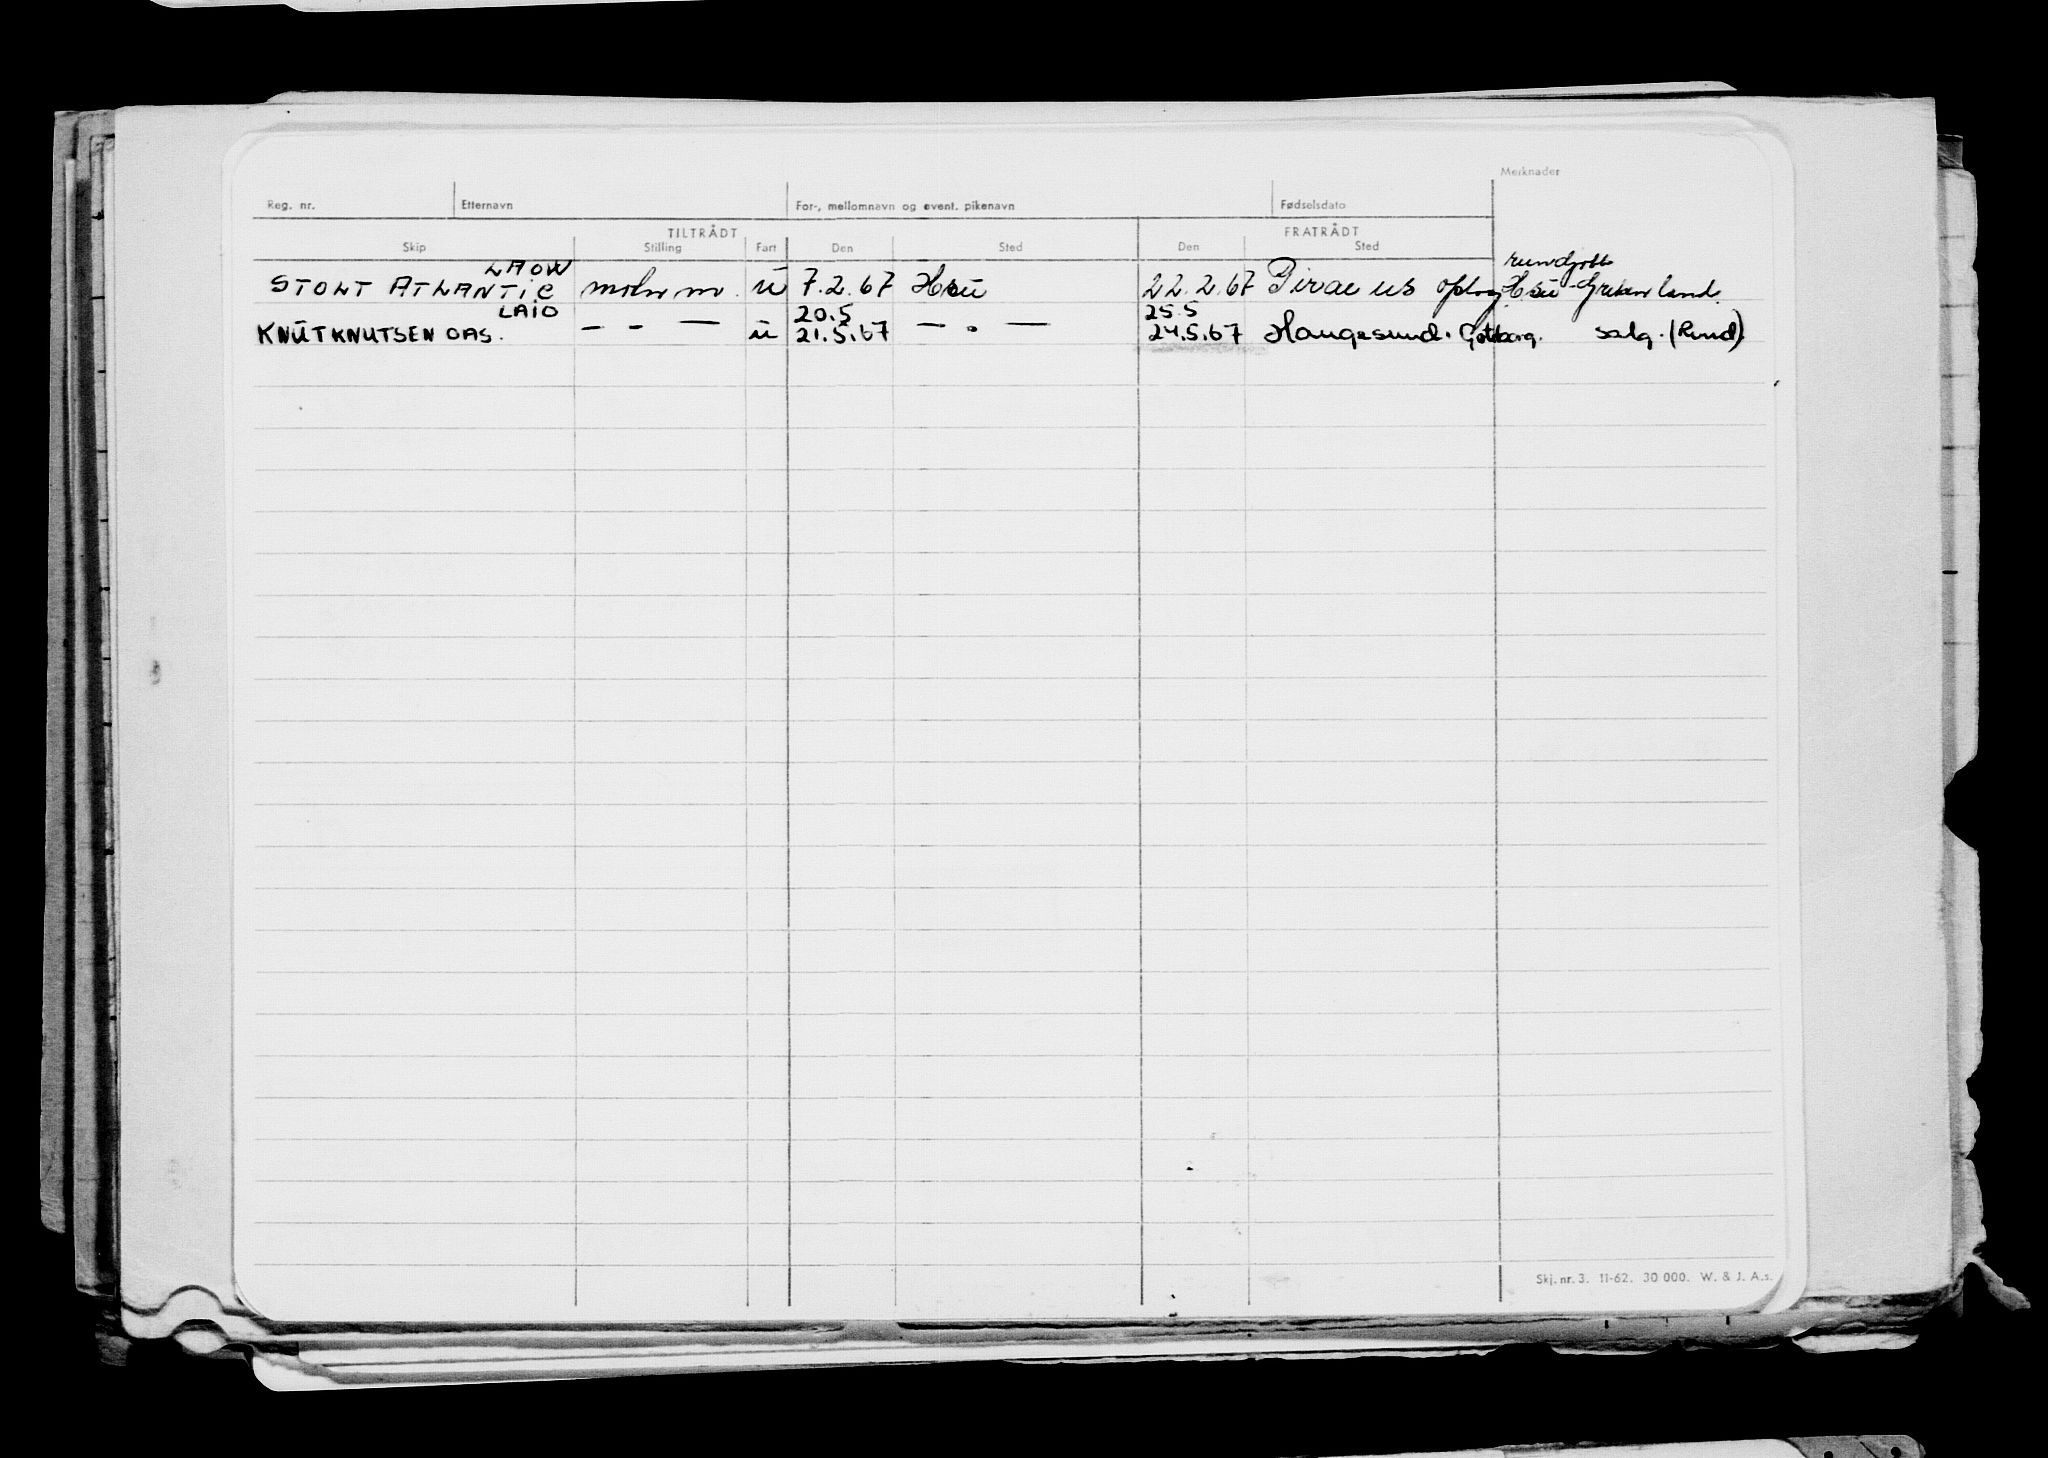 Merknader
Reg. nr. Etternavn For-, mellomnavn og event. pikenavn Fødselsdato
TILTRÅDT FRATRÅDT
Skip Stilling Fart Den Sted Den Sted
LAOW rundjobb
STOLT ATLANTIC u 7.2.67 Hsu 22.2.67 Piraeus Hsu - land.
LAIO 20.5 25.5
KNUT KNUTSEN OAS. - - — u 21.5.67 — " — 24.5.67 Haugesund. Gøteborg. salg. (Rund)
Skj. nr. 3. 11-62. 30 000. W. & J. A.s.